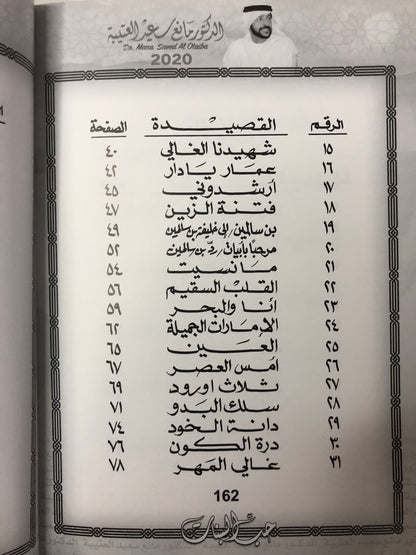 الدكتور مانع سعيد العتيبة
Dr. Mana Saeed Al Otaiba
2020
الرقم القصيدة الصفحة
١٥ شهيدنا الغالي ٤٠
١٦ عمار يادار ٤٢
١٧ أرشدوني ٤٥
١٨ فتنة الزين ٤٧
١٩ بن سالمين إلى خليفة بن سالمين ٤٩
٢٠ مرحبا بأبيات ردّ بن سالمين ٥٢
٢١ ما نسيت ٥٤
٢٢ القلب السقيم ٥٦
٢٣ أنا والبحر ٥٩
٢٤ الإمارات الجميلة ٦٢
٢٥ العين ٦٥
٢٦ أمس العصر ٦٧
٢٧ ثلاث اورود ٦٩
٢٨ سلك البدو ٧١
٢٩ دانة الخود ٧٤
٣٠ درة الكون ٧٦
٣١ غالي المهر ٧٨
162